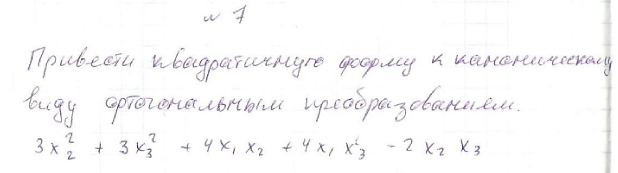 № 7
Привести квадратичную форму к каноническому
виду ортогональным преобразованием.
3x₂² + 3x₃² + 4x₁x₂ + 4x₁x₃ - 2x₂x₃